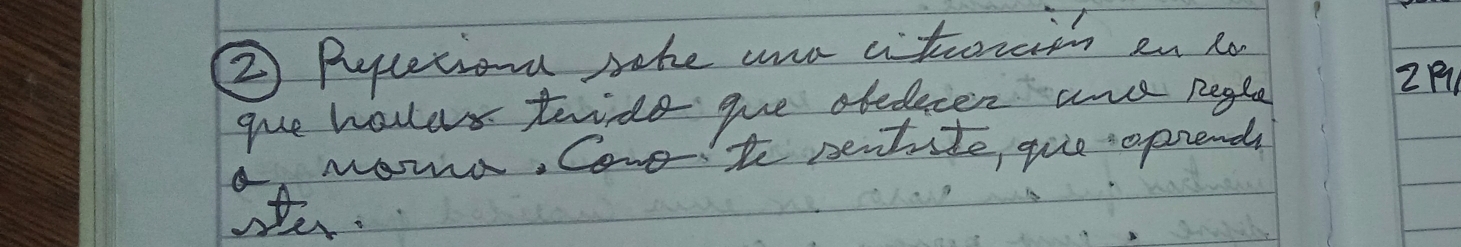 ② Reflexiona sobre una situación en la
que hallas tenido que obedecer una regla 2 P
o norma. Como te sentiste, que aprendi
stes.